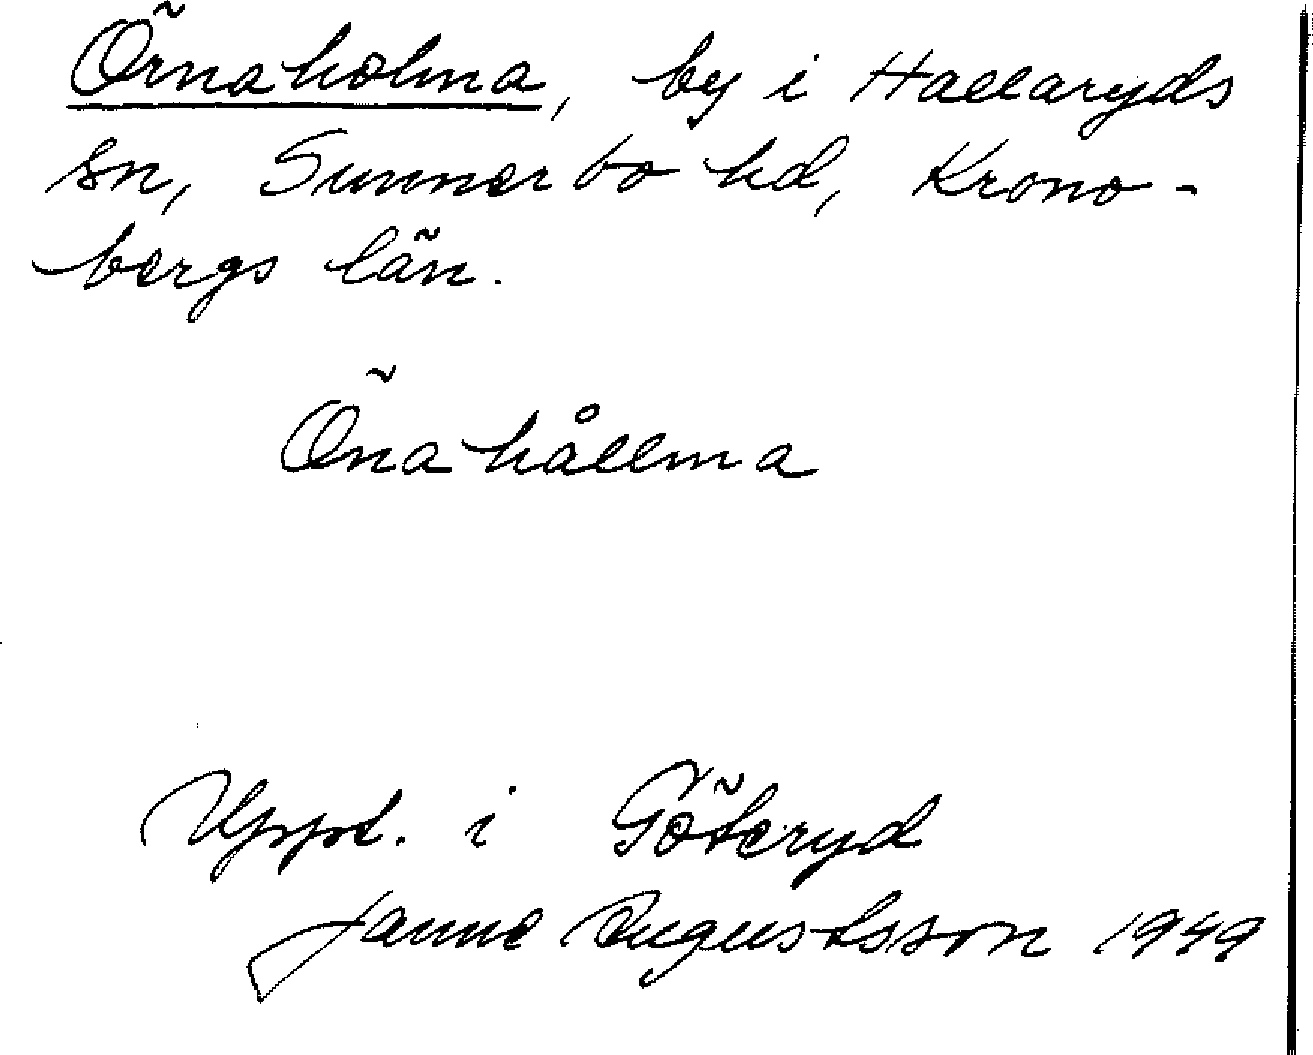 Örnaholma, by i Hallaryds
sn, Sunnerbo hd, Krono-
bergs län.
Önahållma
Uppt. i Göteryd
Janne Augustsson 1949